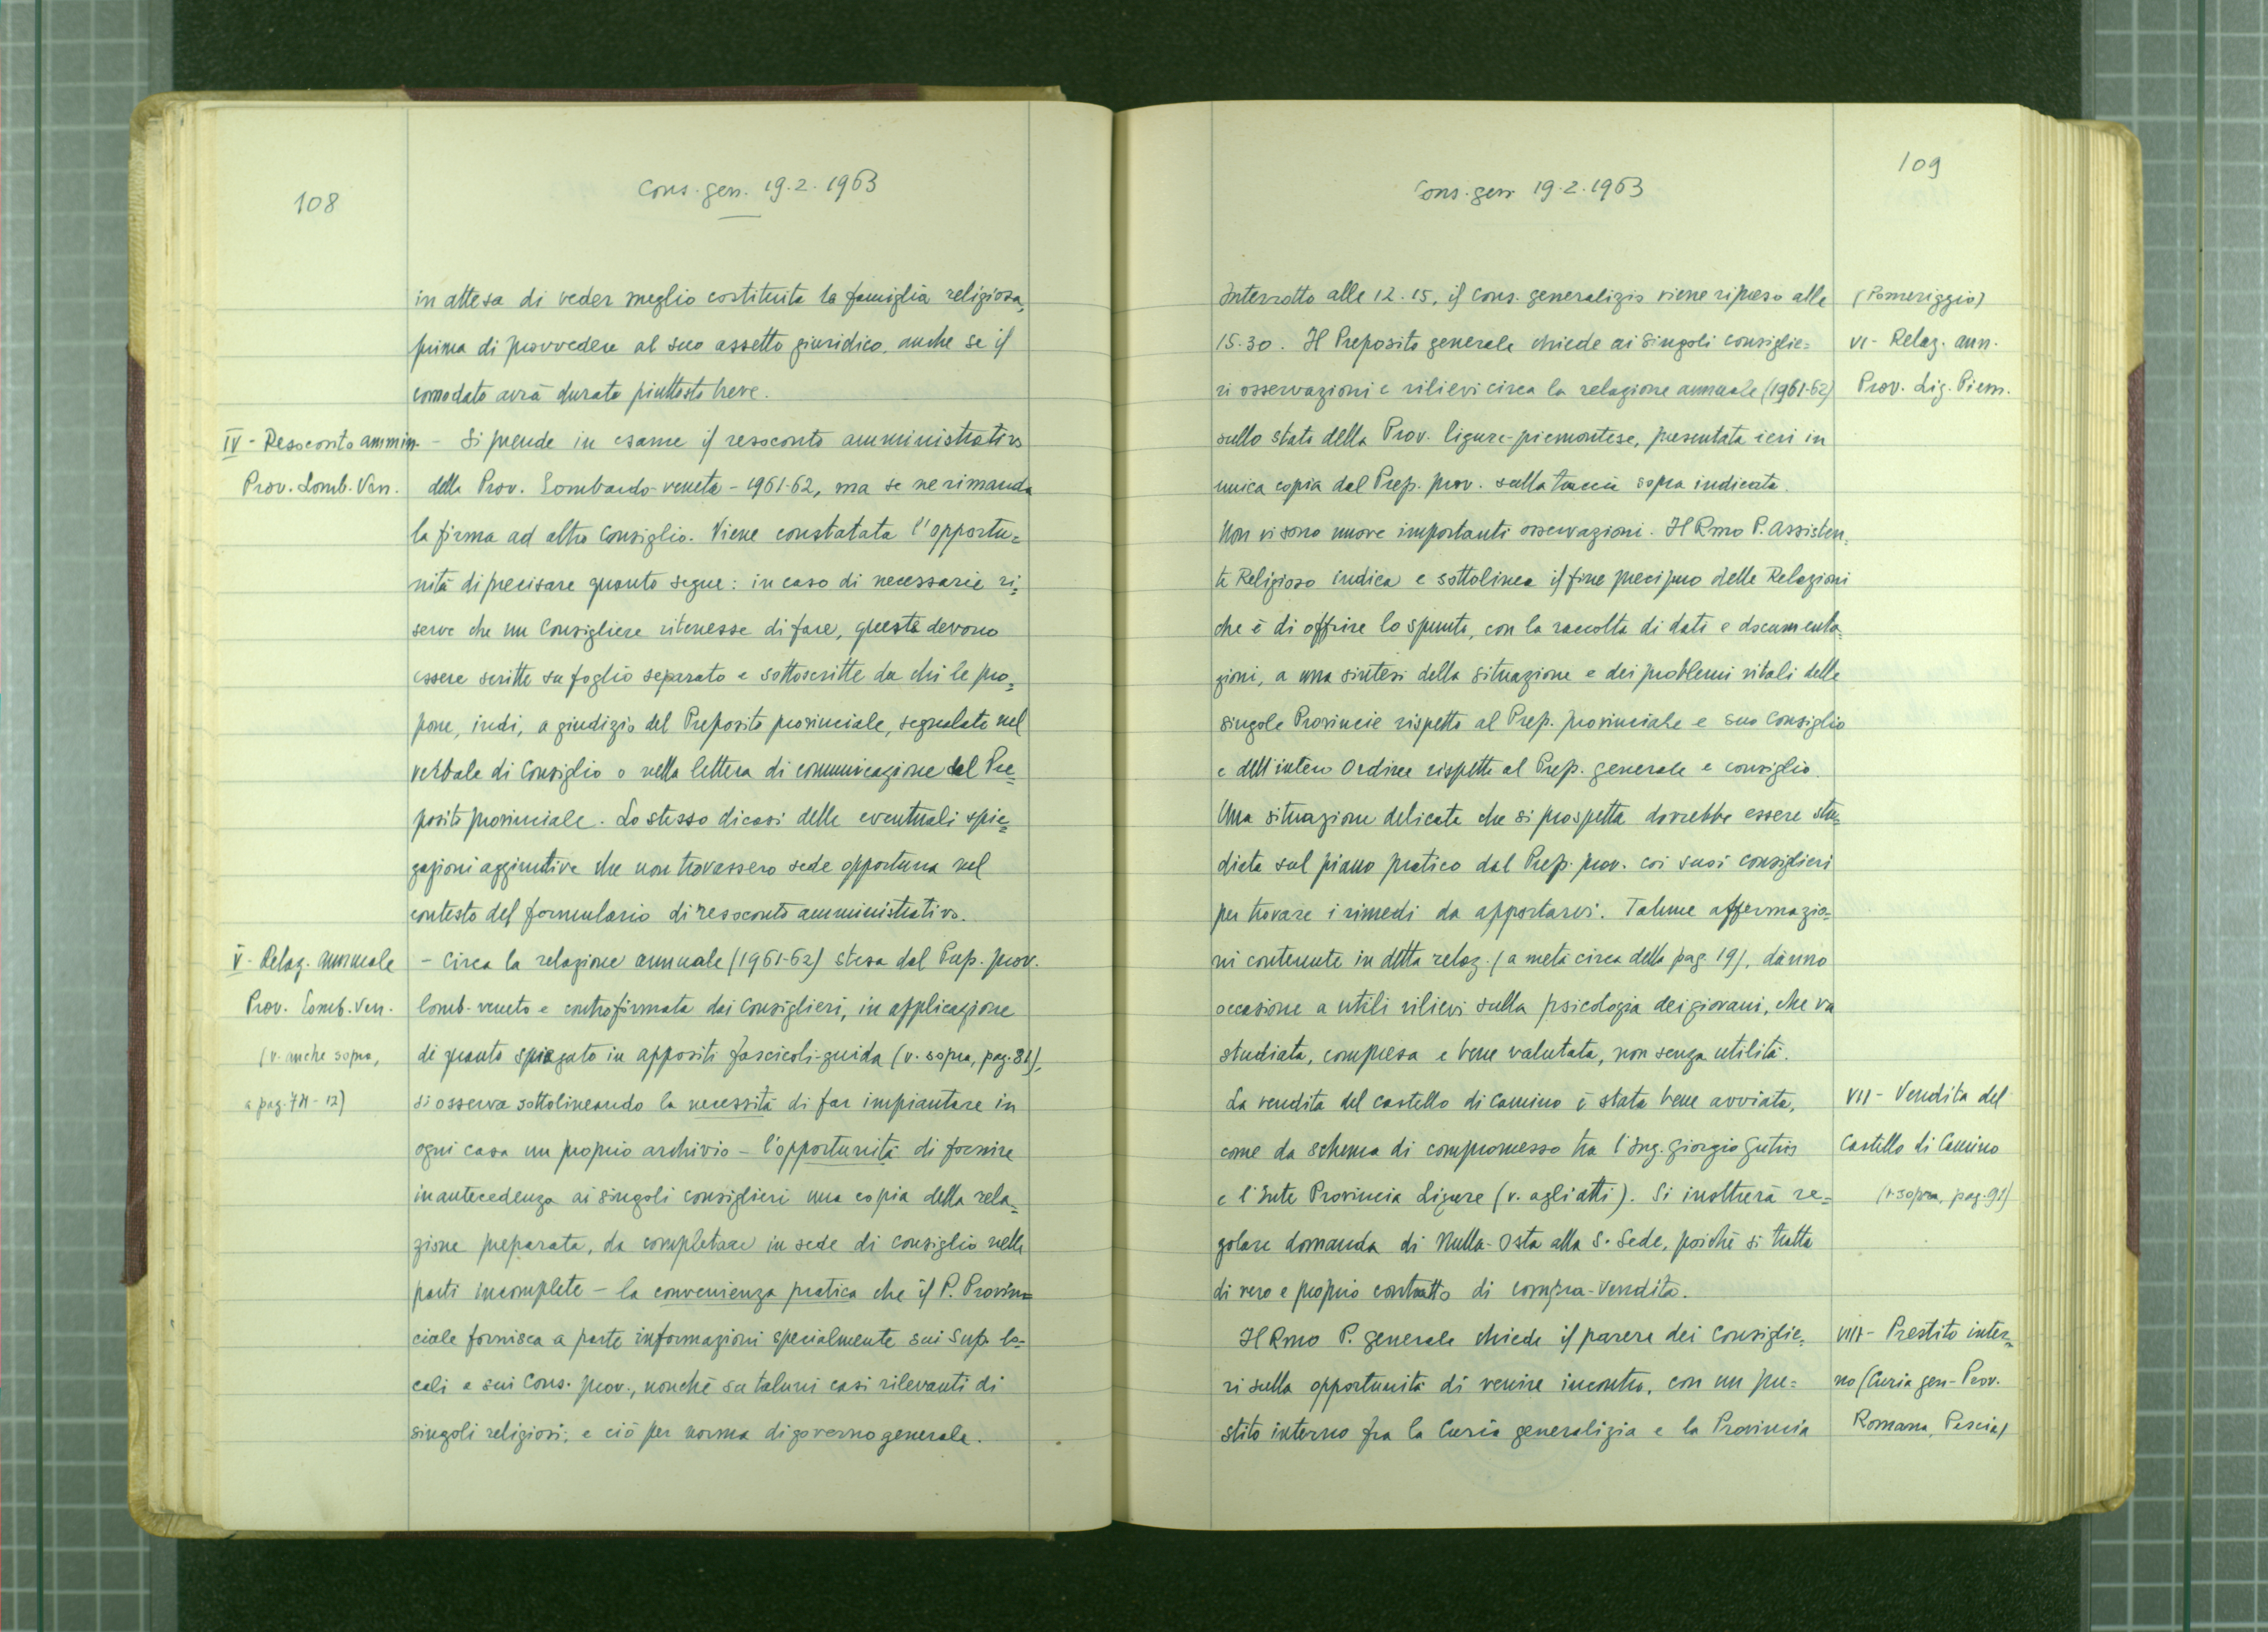 108
Cons. gen. 19.2.1963
in attesa di veder meglio costituita la famiglia religiosa,
prima di provvedere al suo assetto giuridico, anche se il
comodato avrà durata piuttosto breve.
IV - Resoconto ammin.
Prov. Lomb. Ven.
- Si prende in esame il resoconto amministrativo
della Prov. Lombardo-veneta - 1961-62, ma se ne rimanda
la firma ad altro Consiglio. Viene constatata l'opportu=
nità di precisare quanto segue: in caso di necessarie ri=
serve che un Consigliere ritenesse di fare, queste devono
essere scritte su foglio separato e sottoscritte da chi le pro=
pone, indi, a giudizio del Preposito provinciale, segnalate nel
verbale di Consiglio o nella lettera di comunicazione del Pre=
posito provinciale. Lo stesso dicasi delle eventuali spie=
gazioni aggiuntive che non trovassero sede opportuna nel
contesto del formulario di resoconto amministrativo.
V - Relaz. annuale
Prov. Lomb. Ven.
(v. anche sopra,
a pag. - 12)
- Circa la relazione annuale (1961-62) stesa dal Prep. prov.
lomb-veneto e controfirmata dai Consiglieri, in applicazione
di quanto spiegato in appositi fascicoli-guida (v. sopra, pag. ),
si osserva sottolineando la necessità di far impiantare in
ogni casa un proprio archivio - l'opportunità di fornire
in antecedenza ai singoli consiglieri una copia della rela=
zione preparata, da completare in sede di consiglio nelle
parti incomplete - la convenienza pratica che il P. Provin=
ciale fornisca a parte informazioni specialmente sui Sup. lo=
cali e sui Cons. prov., nonché su taluni casi rilevanti di
singoli religiosi; e ciò per norma di governo generale.
109
Cons. gen. 19.2.1963
Interrotto alle 12.15, il Cons. generalizio viene ripreso alle
15.30. Il Preposito generale chiede ai singoli consiglie=
ri osservazioni e rilievi circa la relazione annuale (1961-62)
sullo stato della Prov. ligure-piemontese, presentata ieri in
unica copia dal Prep. prov. sulla traccia sopra indicata.
Non vi sono nuove importanti osservazioni. Il Rmo P. Assisten=
te Religioso indica e sottolinea il fine precipuo delle Relazioni
che è di offrire lo spunto, con la raccolta di dati e documenta=
zioni, a una sintesi della situazione e dei problemi vitali delle
singole Provincie rispetto al Prep. provinciale e suo Consiglio
e dell'intero Ordine rispetto al Prep. generale e consiglio.
Una situazione delicata che si prospetta dovrebbe essere stu=
diata sul piano pratico dal Prep. prov. coi suoi consiglieri
per trovare i rimedi da apportarvi. Talune affermazio=
ni contenute in detta relaz. (a metà circa della pag. 19), dànno
occasione a utili rilievi sulla psicologia dei giovani, che va
studiata, compresa e bene valutata, non senza utilità.
La vendita del castello di Camino è stata bene avviata,
come da schema di compromesso tra l'Ing. Giorgio
e l'Ente Provincia Ligure (v. agli atti). Si inoltrerà re=
golare domanda di Nulla-Osta alla S. Sede, poiché si tratta
di vero e proprio contratto di compra-vendita.
Il Rmo P. generale chiede il parere dei Consiglie=
ri sulla opportunità di venire incontro, con un pre=
stito interno fra la Curia generalizia e la Provincia
(Pomeriggio)
VI - Relaz. ann.
Prov. Lig. Piem.
VII - Vendita del
Castello di Camino
(v. sopra, pag. 91)
VIII - Prestito inter=
no (Curia gen - Prov.
Romana, Pescia)